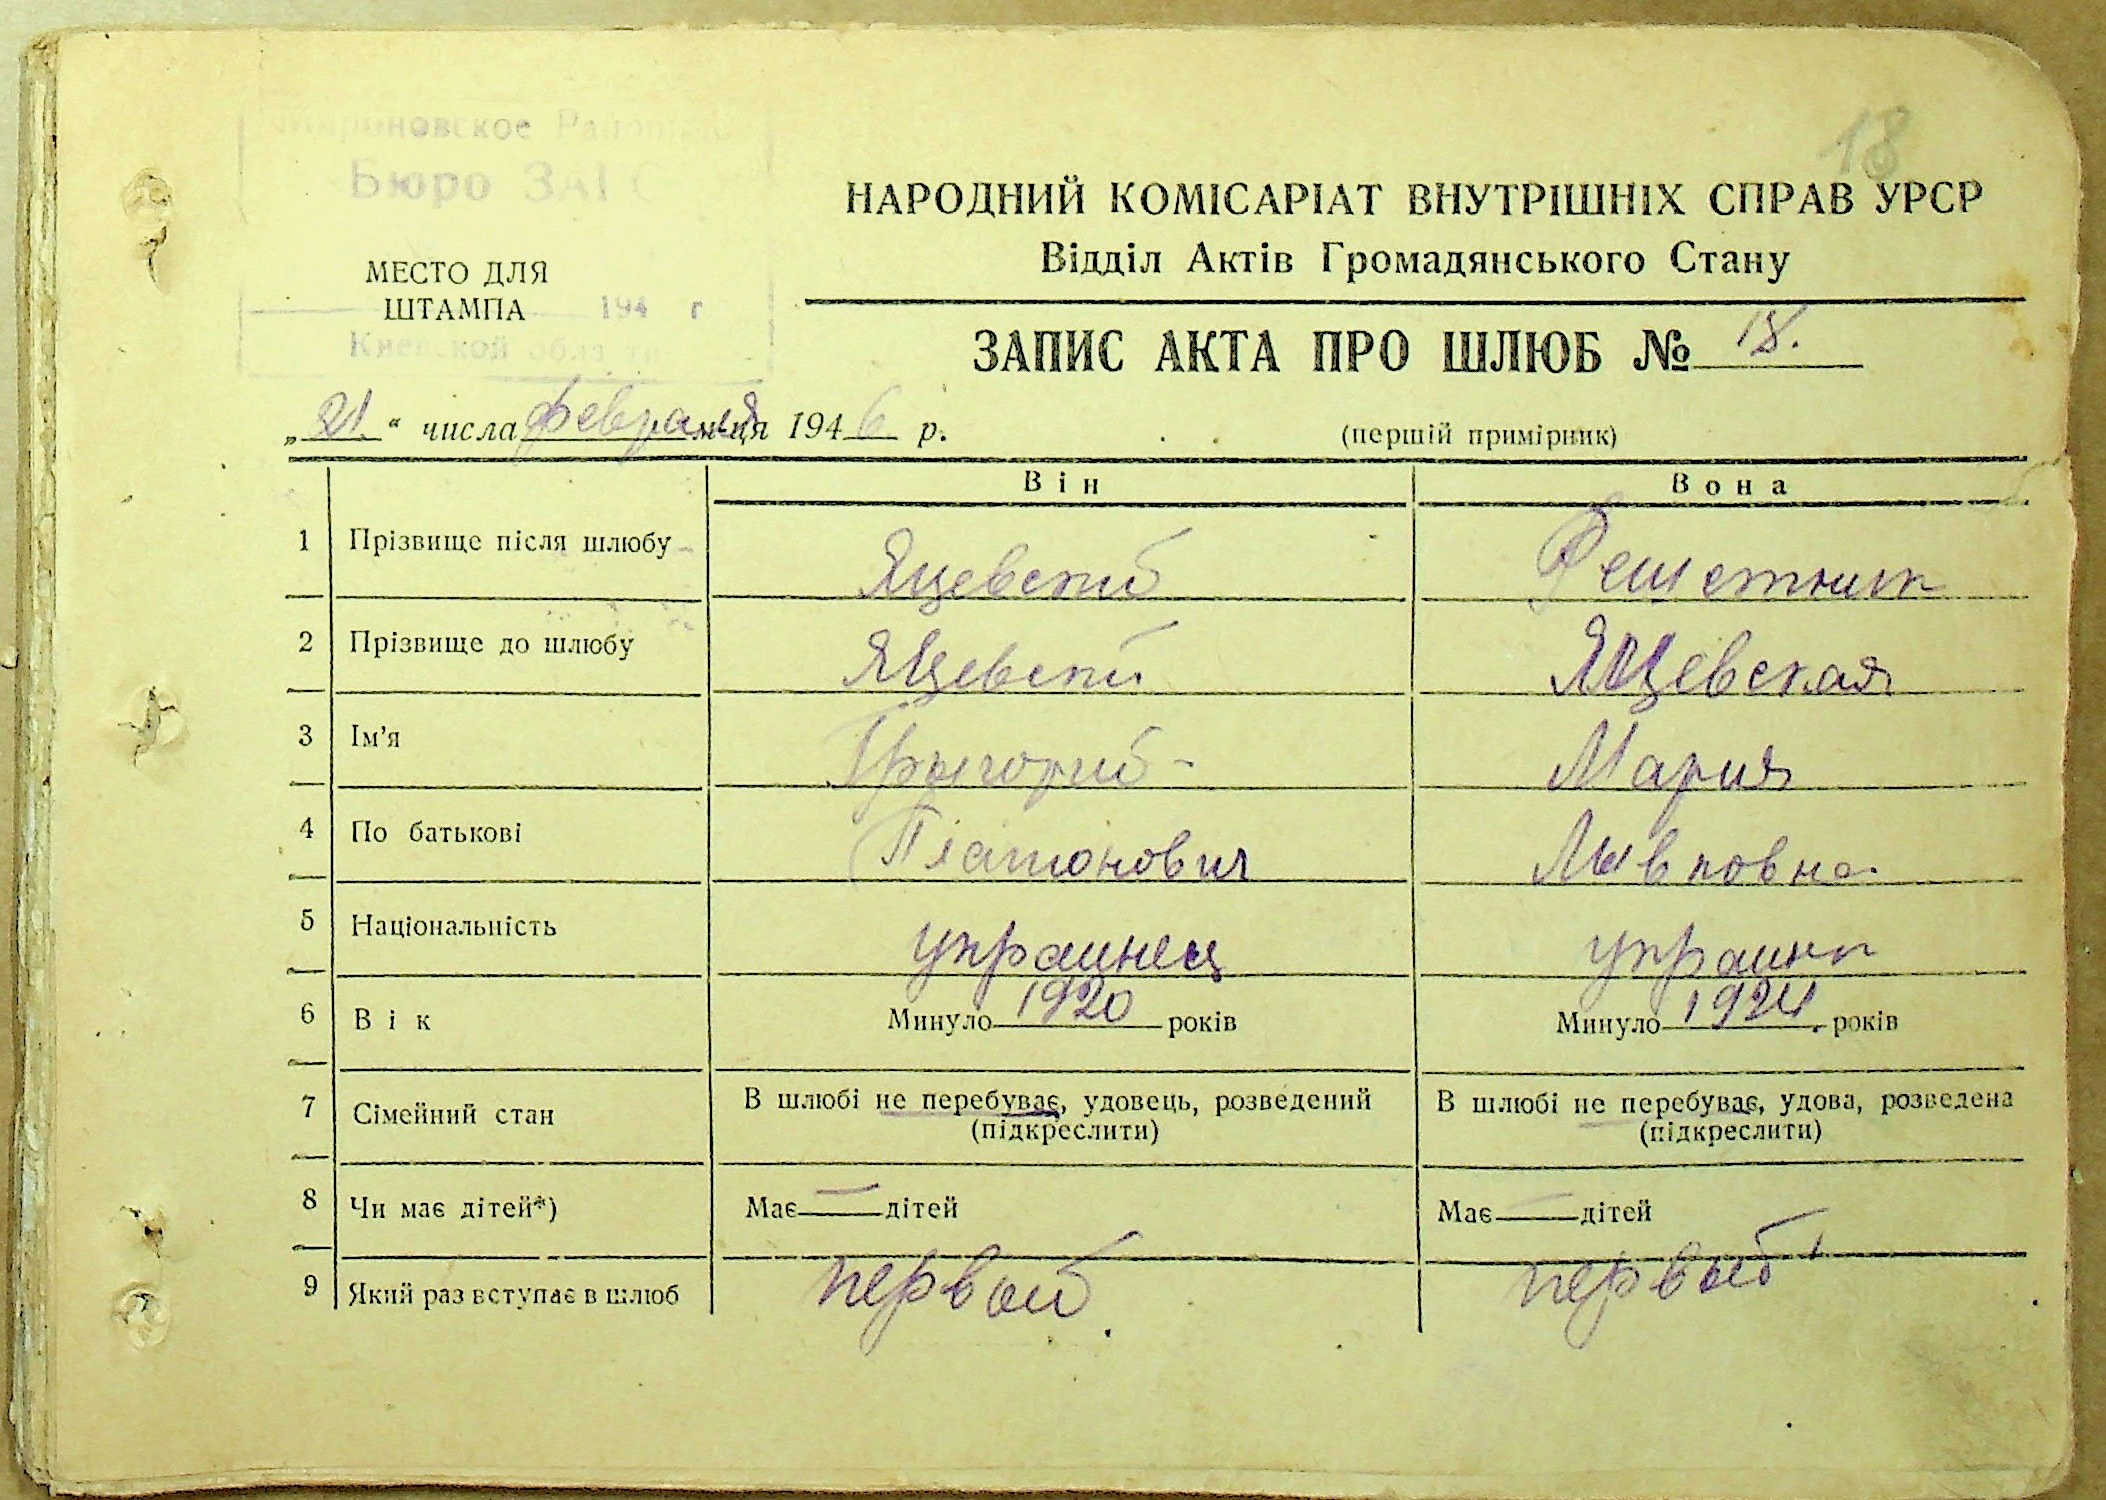 18
Бюро ЗАГС
НАРОДНИЙ КОМІСАРІАТ ВНУТРІШНІХ СПРАВ УРСР
Відділ Актів Громадянського Стану
МЕСТО ДЛЯ
ШТАМПА
194 г
Киевской области
ЗАПИС АКТА ПРО ШЛЮБ № 18.
„21“ числа февраля м-ця 1946 р.
(перший примірник)
Він Вона
1 Прізвище після шлюбу Яцевский Решетник
2 Прізвище до шлюбу Яцевский Яцевская
3 Ім'я Грыгорий - Мария
4 По батькові Платонович Лывковна
5 Національність украинец украинк
6 Вік Минуло 1920 років Минуло 1924 років
7 Сімейний стан В шлюбі не перебуває, удовець, розведений (підкреслити) В шлюбі не перебуває, удова, розведена (підкреслити)
8 Чи має дітей*) Має — дітей Має — дітей
9 Який раз вступає в шлюб первый первый